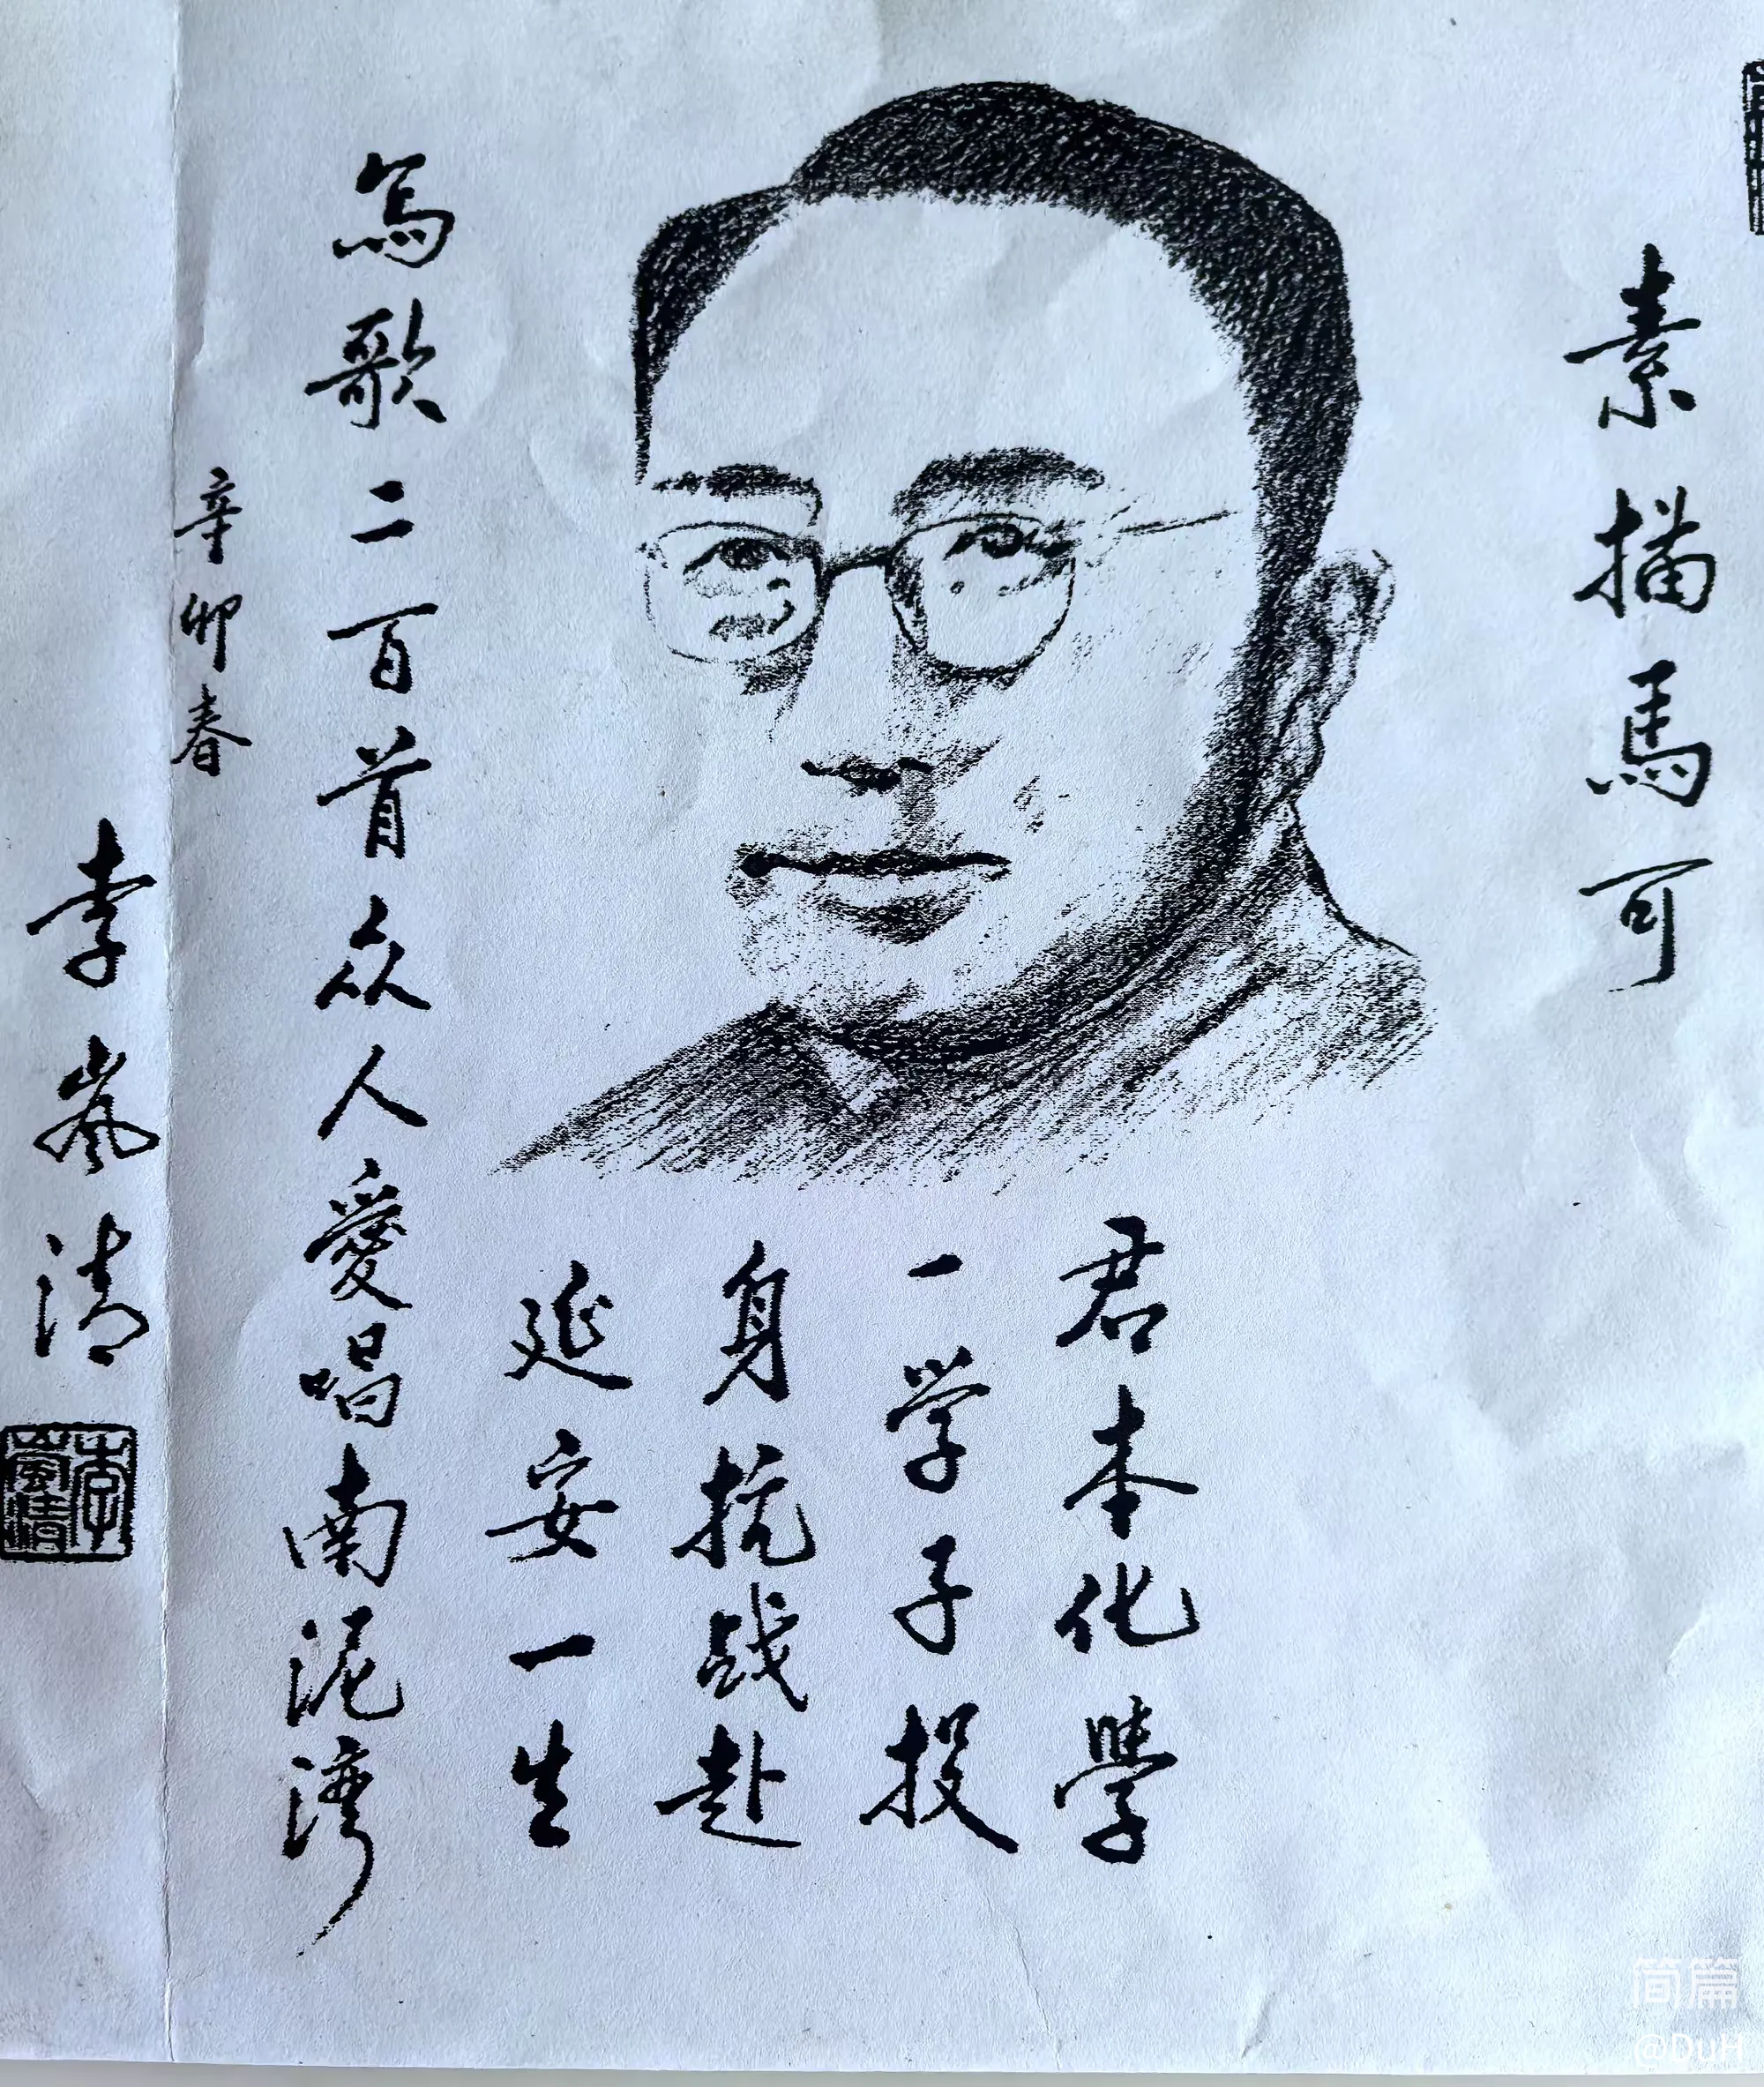 素描馬可
君本化學
一学子投
身抗战赴
延安一生
寫歌二百首众人愛唱南泥湾
辛卯春
李嵐清
李嵐清
简篇
@DuH